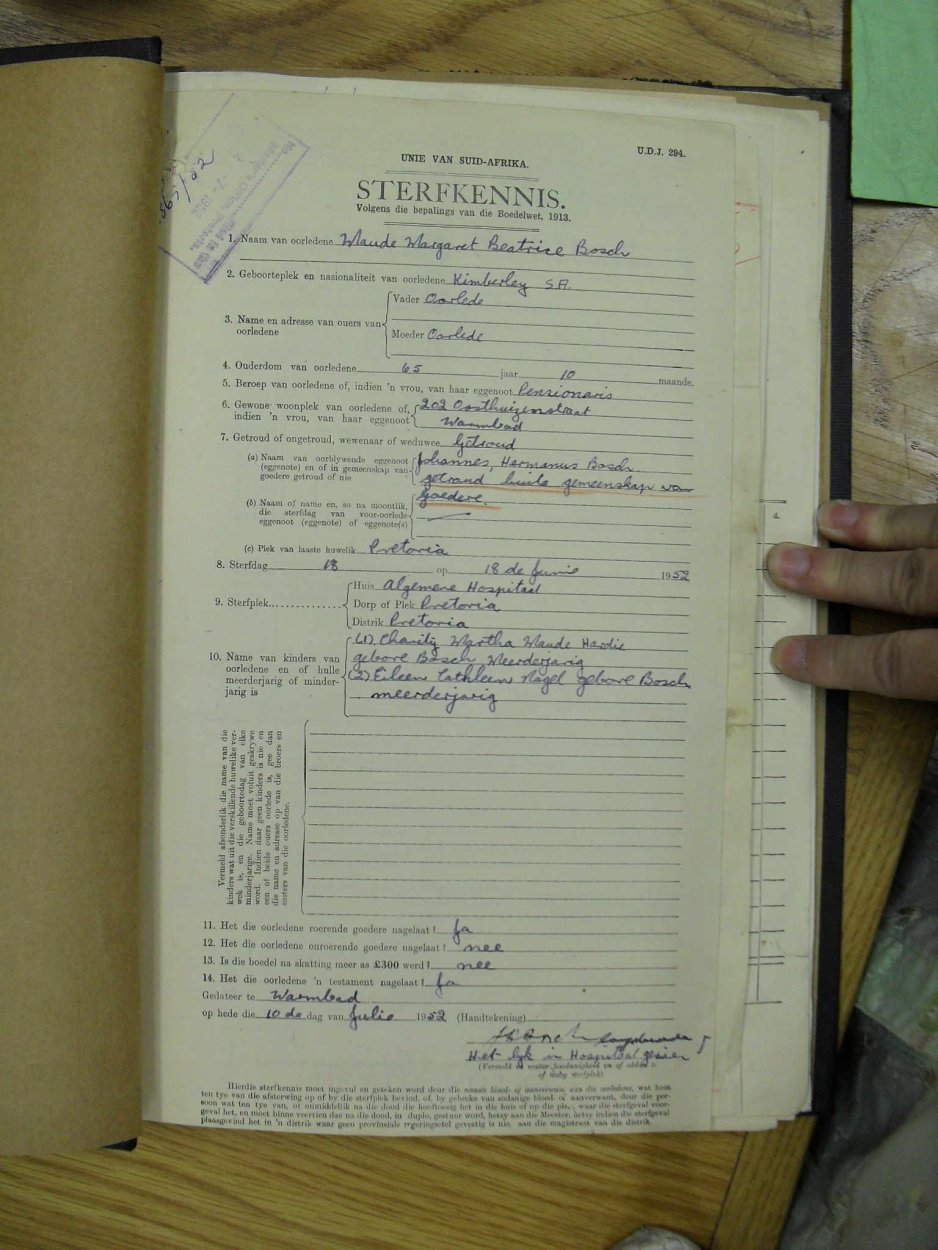 U.D.J. 294.
UNIE VAN SUID-AFRIKA.
STERFKENNIS.
Volgens die bepalings van die Boedelwet, 1913.
1. Naam van oorledene Maude Margaret Beatrice Bosch
2. Geboorteplek en nasionaliteit van oorledene Kimberley S.A.
3. Name en adresse van ouers van oorledene
Vader Oorlede
Moeder Oorlede
4. Ouderdom van oorledene 65 jaar 10 maande.
5. Beroep van oorledene of, indien 'n vrou, van haar eggenoot Pensionaris
6. Gewone woonplek van oorledene of, indien 'n vrou, van haar eggenoot
202 Oosthuizenstraat
Warmbad
7. Getroud of ongetroud, wewenaar of weduwee Getroud
(a) Naam van oorblywende eggenoot
(eggenote) en of in gemeenskap van
goedere getroud of nie
Johannes, Hermanus Bosch.
getroud buite gemeenskap van
goedere.
(b) Naam of name en, so na moontlik,
die sterfdag van voor-oorlede
eggenoot (eggenote) of eggenote(s)
(c) Plek van laaste huwelik Pretoria
8. Sterfdag 18 op 18 de Junie 1952
9. Sterfplek
Huis Algemene Hospitaal
Dorp of Plek Pretoria
Distrik Pretoria
10. Name van kinders van
oorledene en of hulle
meerderjarig of minder-
jarig is
(1) Charity Martha Maude Hardie
gebore Bosch, Meerderjarig
(2) Eileen Cathleen Nagel gebore Bosch
meerderjarig
Vermeld afsonderlik die name van die
kinders wat uit die verskillende huwelike ver-
wek is, en die geboortedag van elke
minderjarige. Name moet voluit geskrywe
word. Indien daar geen kinders is nie en
een of beide ouers oorlede is, gee dan
die name en adresse op van die broers en
susters van die oorledene.
11. Het die oorledene roerende goedere nagelaat? Ja
12. Het die oorledene onroerende goedere nagelaat? nee
13. Is die boedel na skatting meer as £300 werd? nee
14. Het die oorledene 'n testament nagelaat? Ja
Gedateer te Warmbad
op hede die 10 de dag van Julie 1952 (Handtekening)
Het lyk in Hospitaal gesien
of naby sterfplek)
Hierdie sterfkennis moet ingevul en geteken word deur die naaste bloed- of aanverwant van die oorledene, wat hom
ten tye van die afsterwing op of by die sterfplek bevind, of, by gebreke van sodanige bloed- of aanverwant, deur die per-
soon wat ten tye van, of onmiddelik na die dood die hooftoesig het in die huis of op die plaas, waar die sterfgeval voor-
geval het, en moet binne veertien dae na die dood, in duplo, gestuur word, hetsy aan die Meester, hetsy indien die sterfgeval
plaasgevind het in 'n distrik waar geen provinsiale regeringsetel gevestig is nie, aan die magistraat van die distrik.